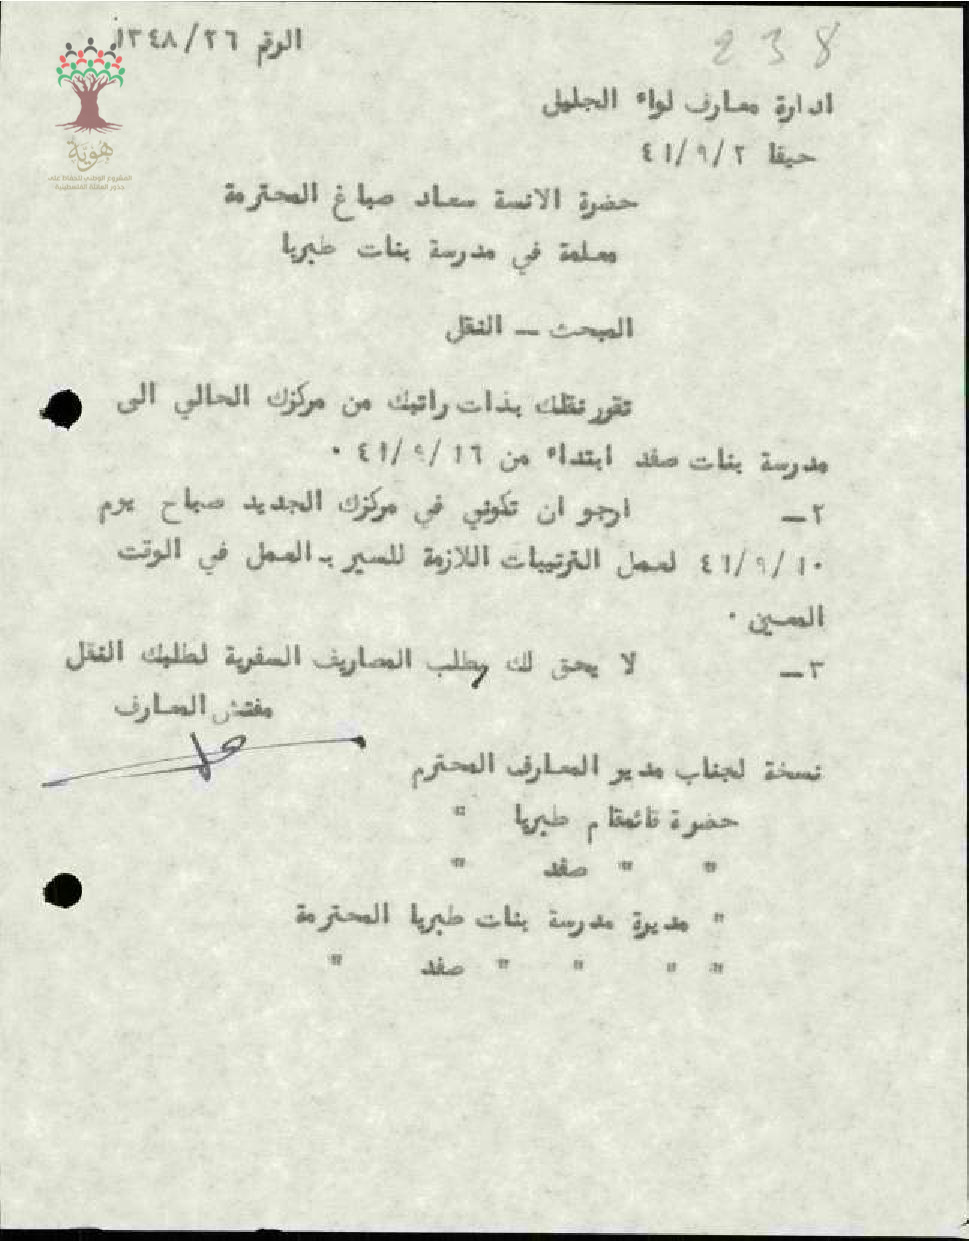 238
الرقم ١٣٤٨/٢٦
ادارة معارف لواء الجليل
حيفا ٤١/٩/٢
حضرة الانسة سعاد صباغ المحترمة
معلمة في مدرسة بنات طبريا
المبحث – النقل
تقرر نقلك بذات راتبك من مركزك الحالي الى
مدرسة بنات صفد ابتداء من ٤١/٩/١٦ ٠
٢– ارجو ان تكوني في مركزك الجديد صباح يوم
٤١/٩/١٠ لعمل الترتيبات اللازمة للسير بـ العمل في الوقت
المعين ٠
٣– لا يحق لك بطلب المصاريف السفرية لطلبك النقل
مفتش المعارف
نسخة لجناب مدير المعارف المحترم
حضرة قائمقام طبريا "
" " صفد "
" مديرة مدرسة بنات طبريا المحترمة
" " " " صفد "
هُويَّة
المشروع الوطني للحفاظ على
جذور العائلة الفلسطينية